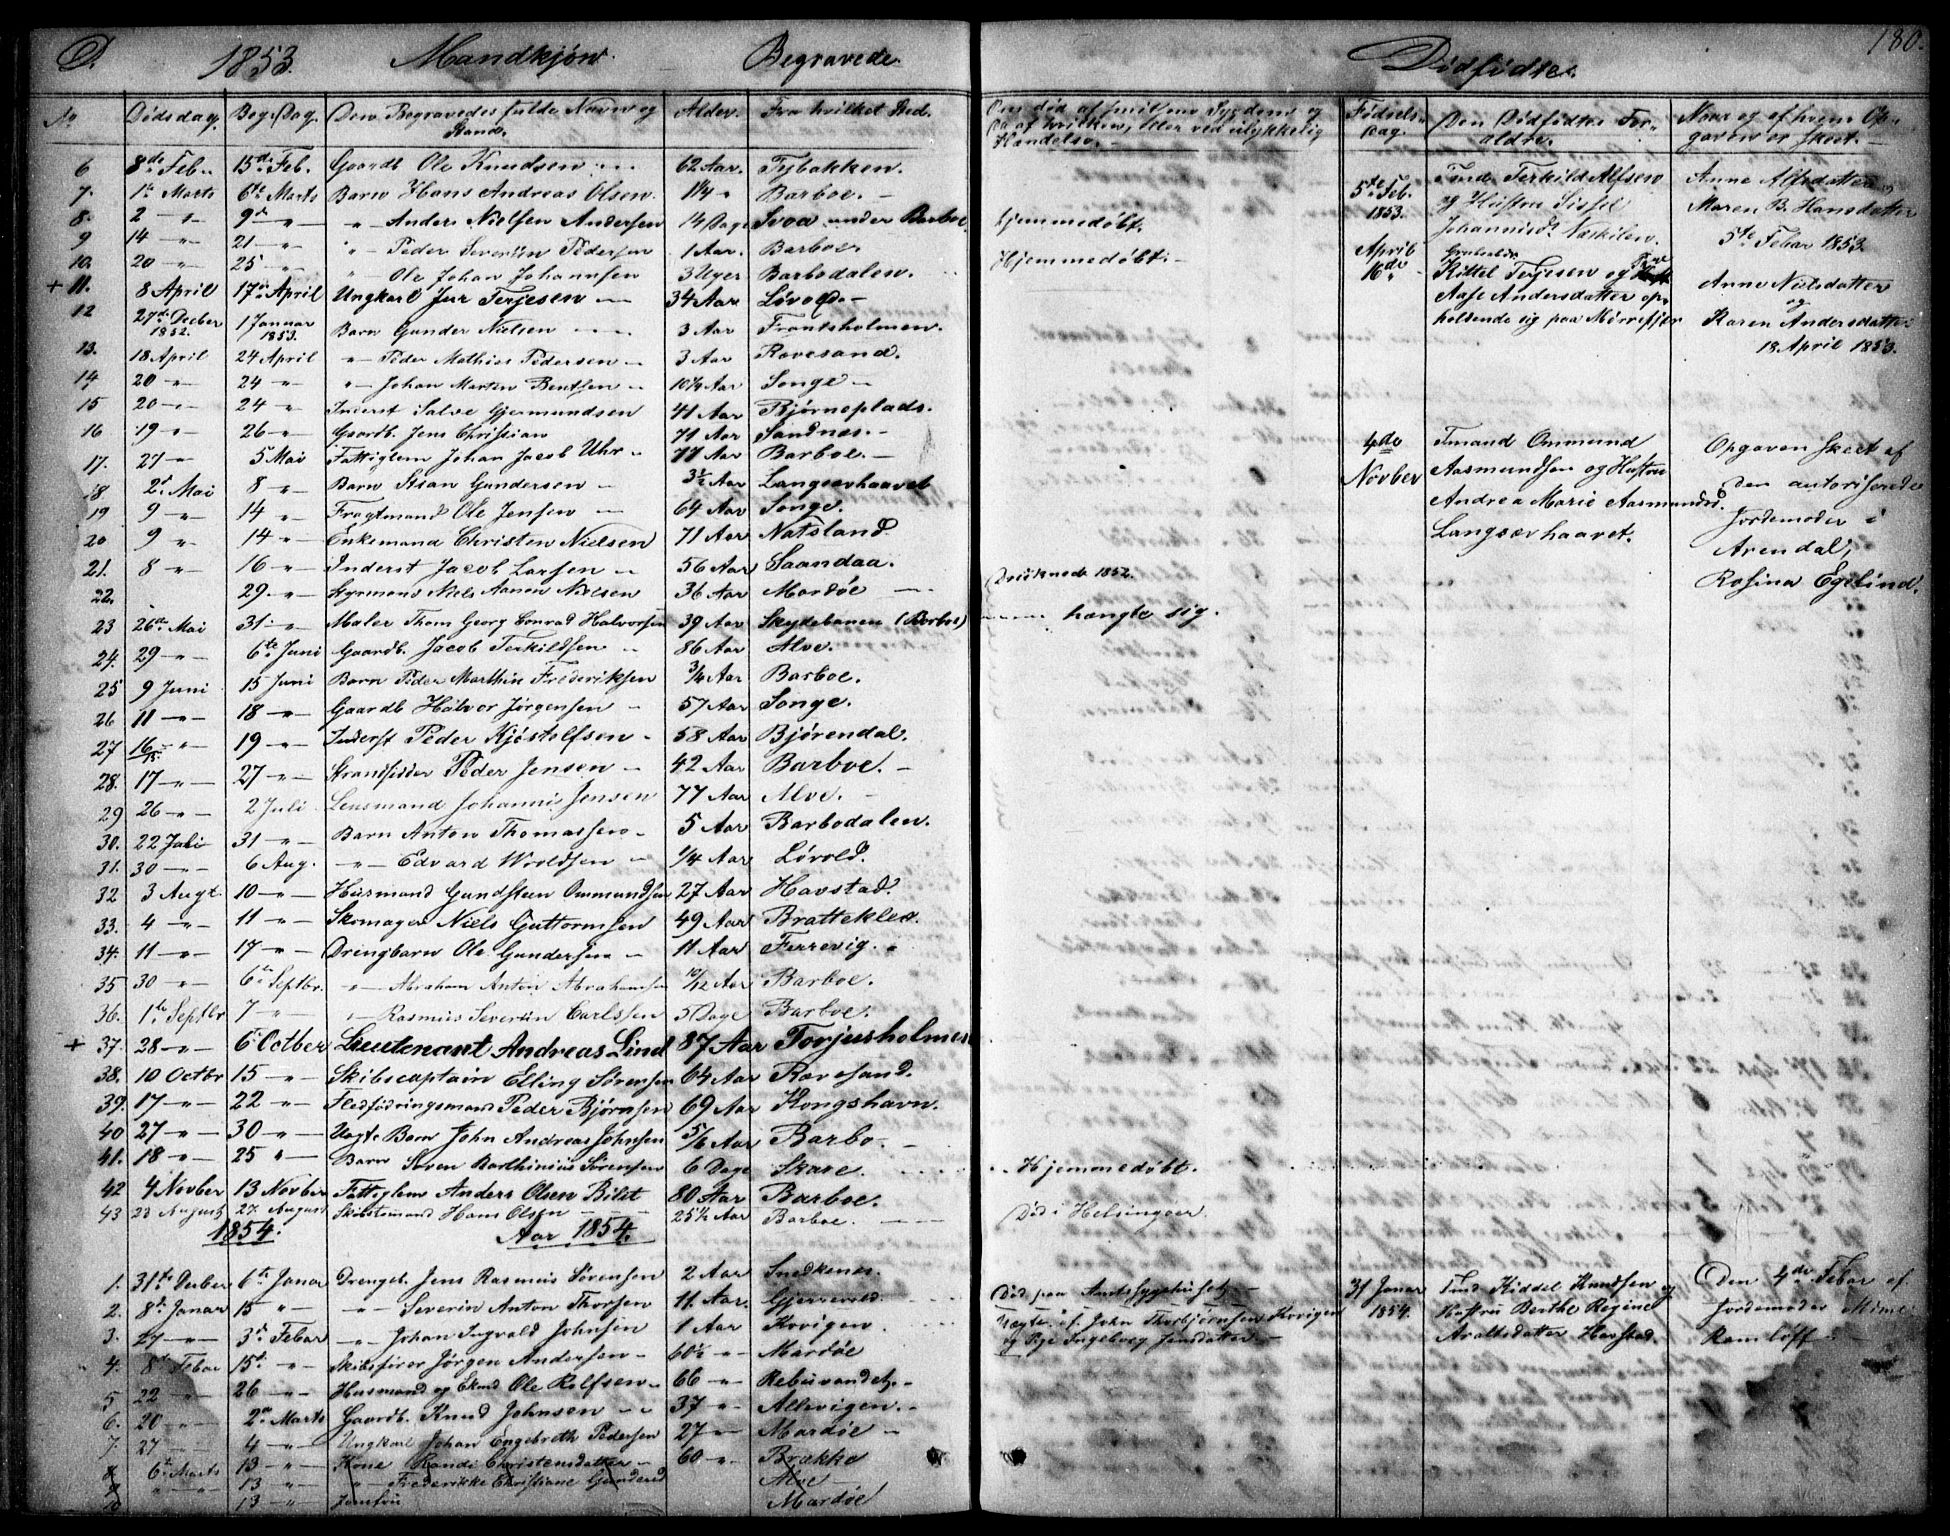 D. 1853. Mandkjøn. Begravede.
No Dødsdag. Beg. Dag. Den Begravedes fulde Navn og Stand. Alder. Fra hvilket Sted.
6 8de Feb. 15de Feb. Gaardb. Ole Knudsen 62 Aar. Fejbakken.
7. 1te Marts 6te Marts Barn Hans Andreas Olsen. 1¼ " Barboe.
8. 2 " 9de " " Anders Nielsen Andersen 14 Dage Svoa under Barboe
9 14 " 21 " " Peder Severin Pedersen 1 Aar. Barboe.
10. 20 " 25 " " Ole Johan Johannsen 3 Uger Barbodalen.
+ 11. 8 April 17de April Ungkarl Jur Terjesen 34 Aar Løvold.
12 27de Decber 1852. 1 Januar 1853. Barn Gunder Nielsen 3 Aar Frantsholmen.
13. 18 April 24 April " Peder Mathias Pedersen 3 Aar Ravesand.
14 20 " 24 " " Johan Martin Bentsen 10¼ Aar Songe
15 20 " 24 " Inderst Salve Gjermundsen 41 Aar Bjørneplads.
16 19 " 26 " Gaardb. Jens Christian 71 Aar Sandnæs.
17. 27 " 5 Mai Fattiglem Johan Jacob Uhr 77 Aar Barboe.
18 2de Mai 8 " Barn Stian Gundersen 3½ Aar Langsævhaavet
19 9 " 14 " Fragtmand Ole Jensen 64 Aar Songe.
20 9 " 14 " Enkemand Christen Nielsen 71 Aar Natsland
21. 8 " 16 " Inderst Jacob Larsen 56 Aar Saandaa.
22. 29. " Styrmand Niels Aanon Nielsen 36 Aar Mardøe
23 26de Mai 31. " Maler Thom Georg Conrad Halvorsen 39 Aar Skydebanen (Barboe)
24. 29 " 6te Juni Gaardb. Jacob Terkildsen 86 Aar Alve.
25 9 Juni 15 Juni Barn Peder Marthin Frederiksen ¾ Aar Barboe.
26 11 " 18 " Gaardb. Halvor Jørgensen 57 Aar Songe.
27 16 " 19 " Inderst Peder Kjøstolfsen 58 Aar Bjørendal.
28. 17 " 27 " Strandsidder Peder Jensen 42 Aar Barboe.
29 26 " 2 Juli Lensmand Johannis Jensen 77 Aar Alve.
30. 22 Juli 31 " Barn Anton Thomassen 5 Aar Barbodalen.
31. 30 " 6 Aug. " Edvard Woldsen ¼ Aar Løvold.
32 3 Augt. 10 " Husmand Gundsteen Ommundsen 27 Aar Havstad.
33. 4 " 11 " Skomager Niels Guttormsen 49 Aar Bratteklev.
34. 11 " 17 " Drengbarn Ole Gundersen 11 Aar Færevig.
35 30 " 6te Septbr. " Abraham Anton Abrahamsen 10/12 Aar Barboe.
36. 1te Septbr 7 " " Rasmus Severin Carlssen 5 Dage Barboe.
+ 37. 28 " 6te Octber Lieutenant Andreas Lind 87 Aar Torjusholmen
38. 10 Octbr 15 " Skibscaptain Elling Sørensen 64 Aar Ravesand.
39. 17 " 22 " Fledføringsmand Peder Bjørnsen 69 Aar Kongshavn.
40 27 " 30 " Uægte Barn John Andreas Johnsen 5/6 Aar Barbo
41. 18 " 25 " Barn Søren Barthinius Sørensen 6 Dage Skare.
42 4 Novber 13 Novber Fattiglem Anders Olsen Bilet 80 Aar Barboe.
43 23 August 27. August Skibstømmand Hans Olsen 25½ Aar Barboe.
1854. Aar 1854.
1. 31te Decber 6te Januar Drengeb. Jens Rasmus Sørensen 2 Aar Snedkenes.
2. 8de Januar 15 " " Severin Anton Thorsen 11. Aar. Gjerrevold.
3. 27 " 3de Febar " Johan Ingvald Johnsen 1 Aar Kovigen
4. 8de Febar 15de " Skibsfører Jørgen Andersen 60½ " Mardøe
5 22 " 26 " Husmand og Ekmd Ole Rolfsen 66 " Rebuvandet.
6. 20 " 2den Marts Gaardb. Knud Johnsen 37 " Allevigen.
7. 27 4 " Ungkarl Johan Engebreth Pedersen 27 " Mardøe
8 6te Marts 13 " Kone Randi Christensdatter 60 " Brække
9 13 " " Frederikke Christiane Gundersd Alve
10 13 " Jomfru Mardøe
Dødfødte. 180.
Om død af smitsom Sygdom og da af hvilken, eller ved ulykkelig Hændelse. Fødsels-Dag. Den Dødfødtes Forældre. Naar og af hvem Opgaven er skeet.
Hjemmedøbt.
Hjemmedøbt.
5te Feb. 1853. Terkild Alfsen og Hustru Sissel Johannisd. Næskilen. Anne Alfsdatter Maren B. Hansdatter 5te Febar 1853
April 16de Kittel Terjesen og Aase Andersdatter opholdende sig paa Mørrefjær Anne Nielsdatter og Karen Andersdatter 18 April 1853.
4de Novber Ommund Aasmundsen og Hustru Andrea Marie Aasmundsd. Langsævhaavet. Opgaven skeet af den autoriserede Jordemoder i Arendal, Rosina Egelind.
Druknede 1852.
hængte sig.
Hjemmedøbt.
Død i Helsingøer.
Død paa Amtssygehuset
Uægte. af John Thorbjørnsen Kovigen og Pige Ingeborg Jensdatter
31 Januar 1854. Kiddel Knudsen og Hustru Berthe Regine Araltsdatter Havstad. Den 4de Febar af Jordemoder Mime Ramløff